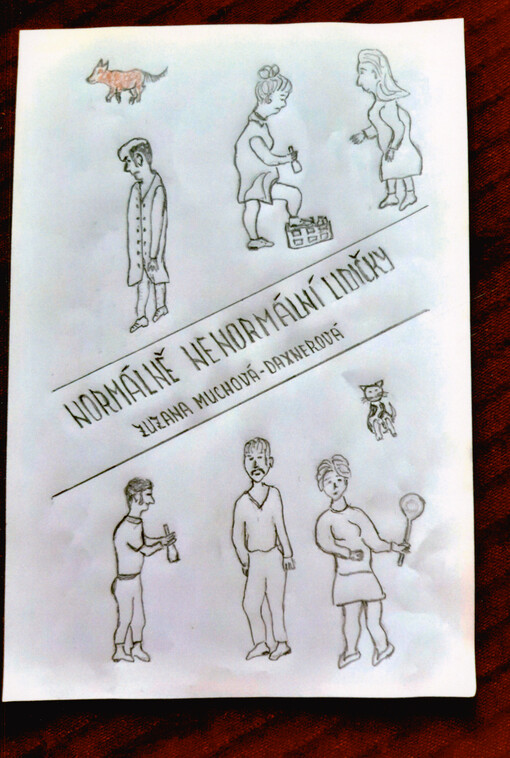 NORMÁLNĚ NENORMÁLNÍ LIDIČKY
ZUZANA MUCHOVÁ-DAXNEROVÁ